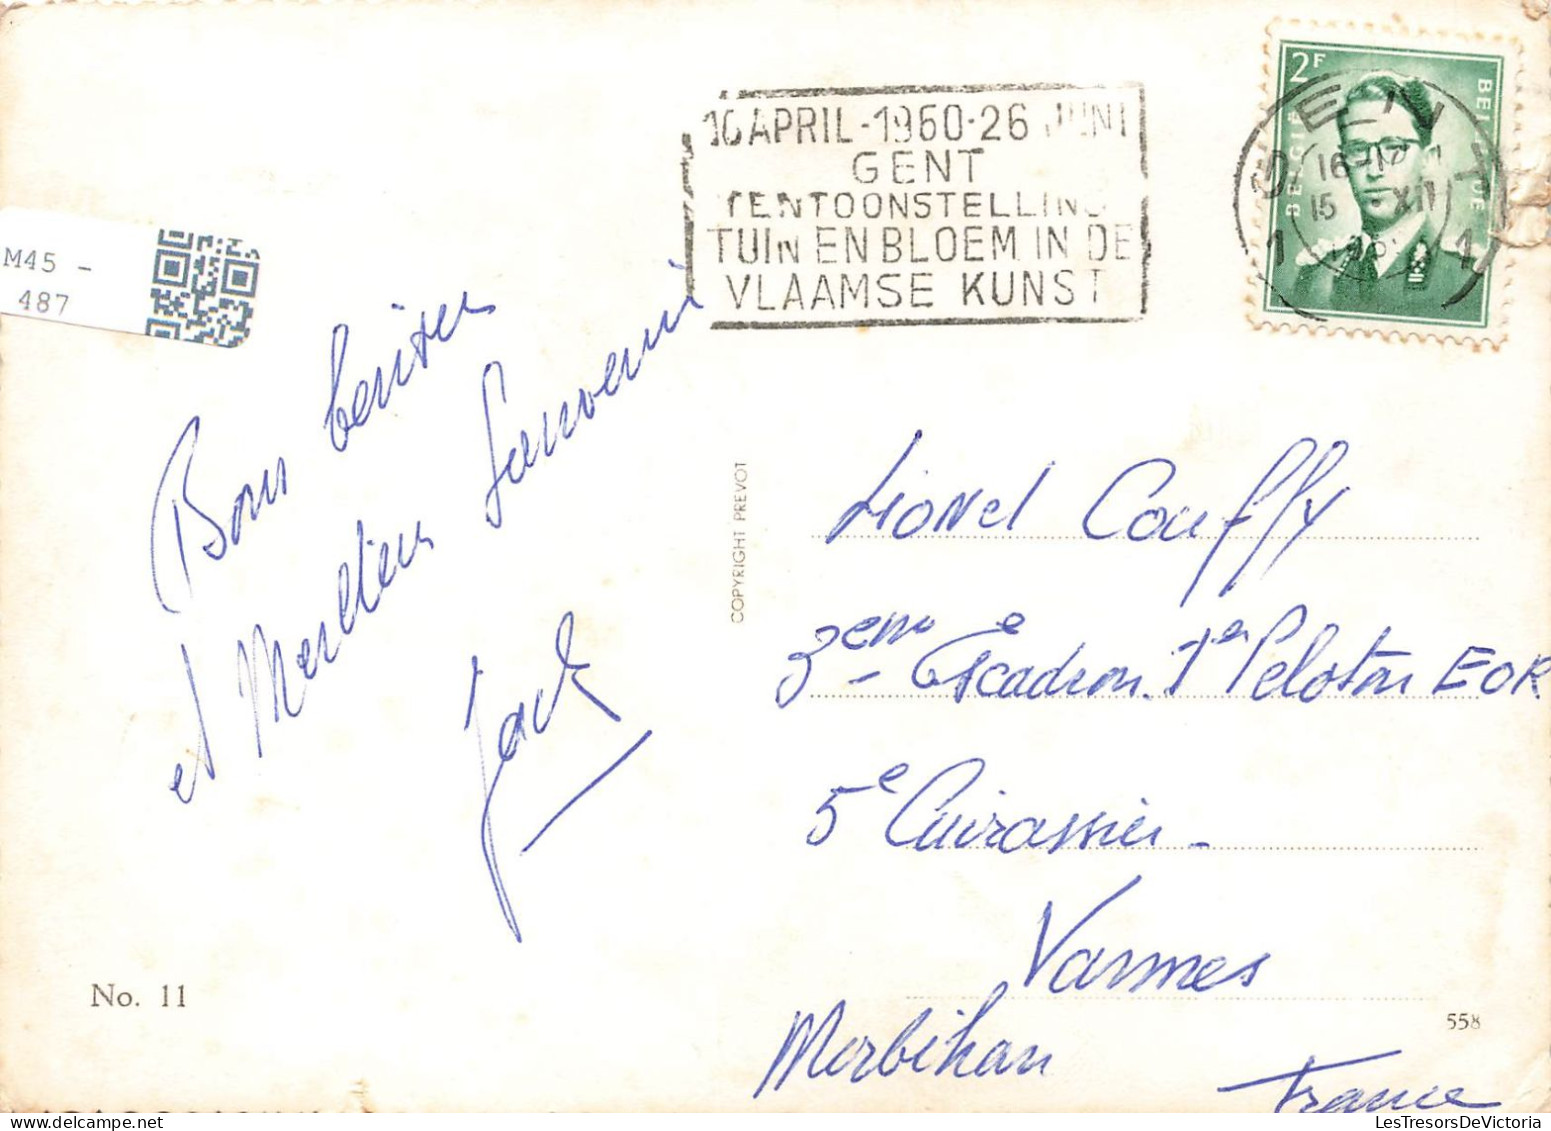 M45 -
487
16 APRIL - 1960 - 26 JUNI
GENT
TENTOONSTELLING
TUIN EN BLOEM IN DE
VLAAMSE KUNST
2F
BELGIE
BELGIQUE
GENT
16-17
15 XII
1 1
Bons baisers
et Meilleurs Souvenirs
Jack
COPYRIGHT PREVOT
Lionel Couffy
3eme Escadron 1er Peloton EOR
5e Cuirassier -
Vannes
Morbihan
France
No. 11
558
LesTresorsDeVictoria